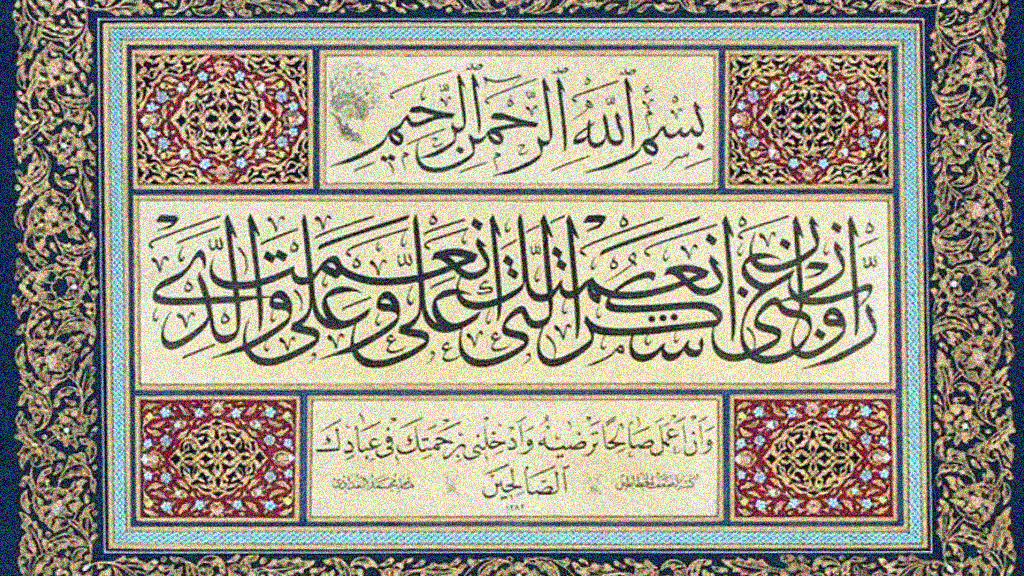 بِسْمِ ٱللَّهِ ٱلرَّحْمَنِ ٱلرَّحِيمِ
رَبِّ أَوْزِعْنِى أَنْ أَشْكُرَ نِعْمَتَكَ الَّتِى أَنْعَمْتَ عَلَىَّ وَعَلَى وَالِدَىَّ
وَاَنْ اَعْمَلَ صَالِحًا تَرْضٰيهُ وَاَدْخِلْنِى بِرَحْمَتِكَ فِى عِبَادِكَ
ٱلصَّالِحِينَ